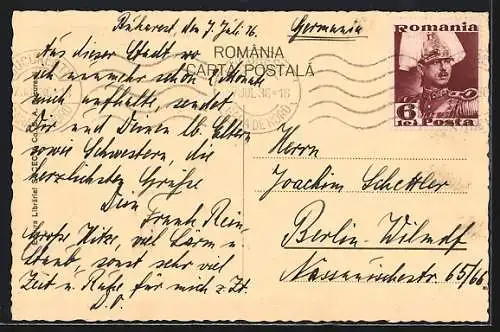 Bukarest, den 7. Juli 36.
Germania
ROMÂNIA
CARTĂ POSTALĂ
Aus dieser Stadt wo
ich nunmehr schon 2 Monate
mich aufhalte, sendet
Dir und Deinen lb. Eltern
sowie Schwestern, die
herzlichsten Grüsse
Dein
Frank
Grosse Hitze, viel Lärm u.
Staub sonst sehr viel
Zeit u. Ruhe für mich z. Zt.
D. O.
Herrn
Joachim Schettler
Berlin-Wilmdf
Nassauischestr 65/66.
ROMANIA
6
lei Posta